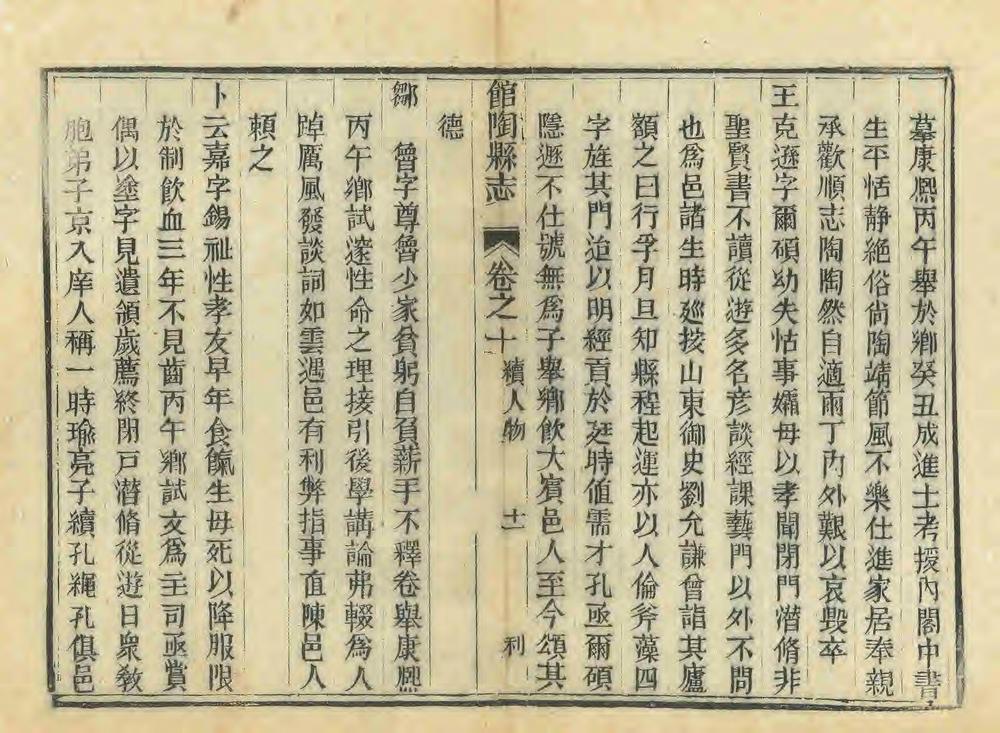 摹康熈丙午舉於鄉癸丑成進士考授內閣中書
生平恬静絕俗尚陶靖節風不樂仕進家居奉親
承歡順志陶陶然自適兩丁內外艱以哀毀卒
王克遜字爾碩幼失怙事孀母以孝聞閉門潜脩非
聖賢書不讀從遊多名彦談經課藝門以外不問
也爲邑諸生時廵按山東御史劉允謙曾詣其廬
額之曰行孚月旦知縣程起運亦以人倫斧藻四
字旌其門迨以明經貢於廷時值需才孔亟爾碩
隱遯不仕號無爲子舉鄉飲大賓邑人至今頌其
館陶縣志 卷之十 續人物 十一 利
德
鄒魯字尊魯少家貧躬自負薪手不釋卷舉康熈
丙午鄉試邃性命之理接引後學講論弗輟爲人
踔厲風發談詞如雲遇邑有利弊指事直陳邑人
頼之
卜云嘉字錫祉性孝友早年食餼生母死以降服限
於制飲血三年不見齒丙午鄉試文爲主司亟賞
偶以塗字見遺領歲薦終閉戸潜脩從遊日衆教
胞弟子京入庠人稱一時瑜亮子續孔繩孔俱邑